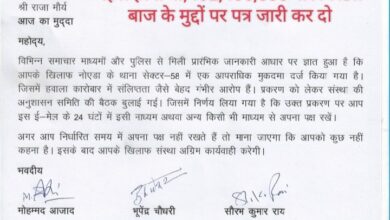 बाज के मुद्दों पर पत्र जारी कर दो
श्री राजा मौर्य
आज का मुद्दा
महोदय,
विभिन्न समाचार माध्यमों और पुलिस से मिली प्रारंभिक जानकारी आधार पर ज्ञात हुआ है कि
आपके खिलाफ नोएडा के थाना सेक्टर-58 में एक आपराधिक मुकदमा दर्ज किया गया है।
जिसमें हवाला कारोबार में संलिप्तता जैसे बेहद गंभीर आरोप हैं। प्रकरण को लेकर संस्था की
अनुशासन समिति की बैठक बुलाई गई। जिसमें निर्णय लिया गया है कि उक्त प्रकरण पर आप
इस ई-मेल के 24 घंटों में इसी माध्यम अथवा अन्य किसी भी माध्यम से अपना पक्ष रखें।
अगर आप निर्धारित समय में अपना पक्ष नहीं रखते हैं तो माना जाएगा कि आपको कुछ नहीं
कहना है। इसके बाद आपके खिलाफ संस्था अग्रिम कार्यवाही करेगी।
भवदीय
मोहम्मद आजाद भूपेंद्र चौधरी सौरभ कुमार राय